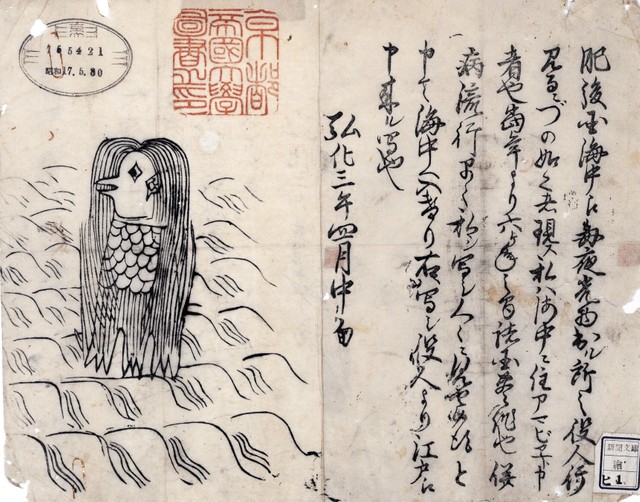 肥後国海中え毎夜光物出ル所之役人行
見るニづの如く者現ス私ハ海中ニ住アマビヱト申
者也当年より六ヶ年之間諸国豊作也併
病流行早々私シ写シ人々ニ見せ候得と
申て海中へ入けり右写シ役人より江戸え
申来ル写也
弘化三年四月中旬
京都
帝國大學
圖書之印
165421
昭和17.5.30
新聞文庫
ヒ1